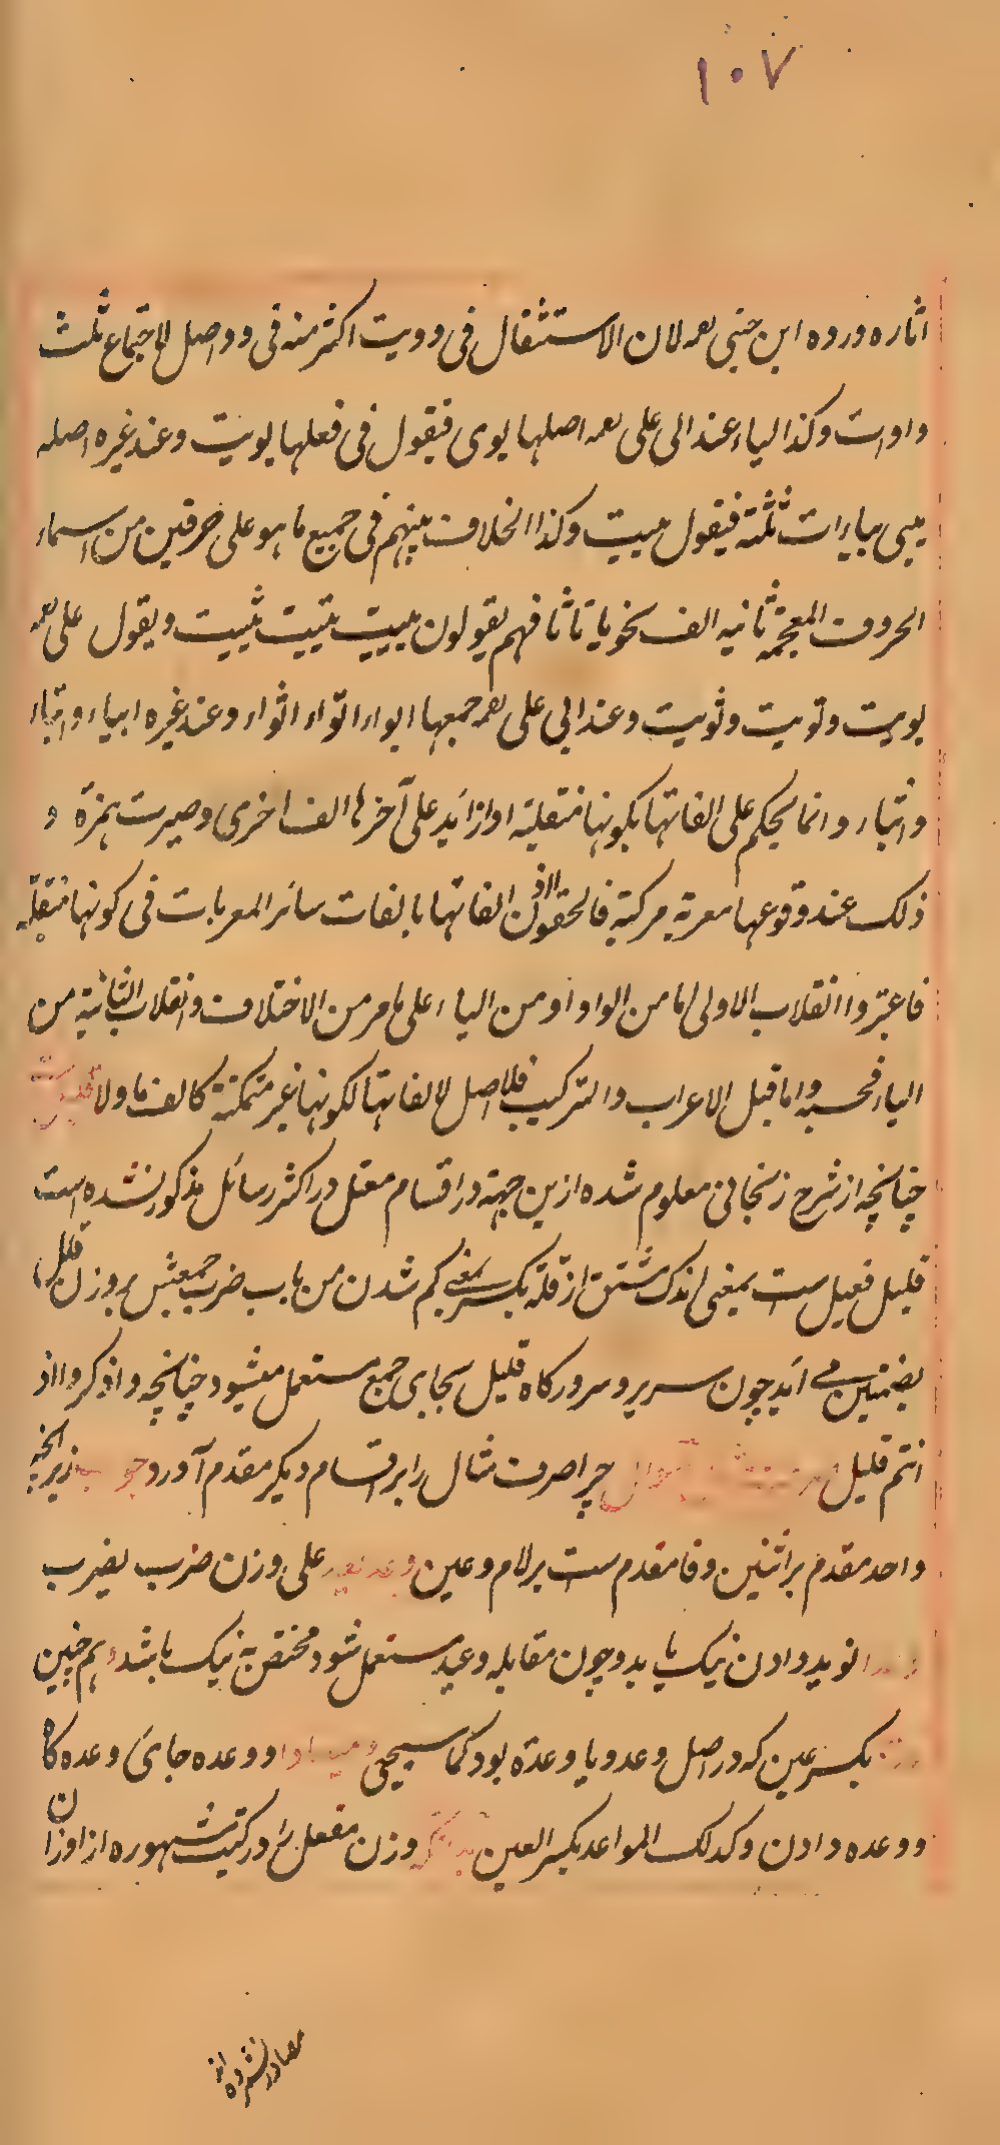 ١٠٧
اثاره ورده ابن جنی بعه لان الاستثقال فی وویت اکثر منه فی وواصل لاجتماع ثلث
واوات وکذا الیاء عند ابی علی بعه اصلها یوی فیقول فی فعلها یویت وعند غیره اصله
ییی بیاءات ثلثة فیقول ییت وکذا الخلاف بینهم فی جمیع ما هو علی حرفین من اسماء
الحروف المعجمة ثانیه الف نحو با تا ثا فهم یقولون بییت تییت ثییت ویقول علی بعه
بویت وتویت وثویت وعند ابی علی بعه جمعها ابواء اتواء اثواء وعند غیره ابیاء واتیاء
واثیاء وانما یحکم علی الفاتها بکونها منقلبة اذا زاید علی آخرها الف اخری وصیرت همزة و
ذلک عند وقوعها معربة مرکبة فالحقوا اذن الفاتها بالفات سائر المعربات فی کونها منقلبة
فاعتبروا انقلاب الاولی اما من الواو او من الیاء علی ما مر من الاختلاف وانقلاب الثانیة من
الیاء فحسب واما قبل الاعراب والترکیب فلا اصل لالفاتها لکونها غیر متمکنة کالف ما ولا
چنانچه از شرح زنجانی معلوم شده ازین جهة در اقسام معتل در اکثر رسائل مذکور نشده است
قلیل فعیل ست بمعنی اندک مشتق از قلة بکسر بمعنی کم شدن من باب ضرب جمعش بر وزن قلل
بضمتین می آید چون سریر و سرر وگاه قلیل بجای جمع مستعمل میشود چنانچه واذکروا اذ
انتم قلیل چرا صرف مثال را بر اقسام دیگر مقدم آورد جواب زیرانچه
واحد مقدم بر اثنین وفا مقدم ست بر لام وعین وعد یعد علی وزن ضرب یضرب
نوید دادن نیک یا بد و چون مقابله وعید مستعمل شود مختص به نیک باشد و همچنین
بکسر عین که در اصل وعد ویا وعدة بود کما سیجئ ووعده جای وعده گاه
ووعده دادن وکذلک المواعد بکسر العین وزن مفعل را در کتب مشهوره از اوزان
مصادر نشمرده اند